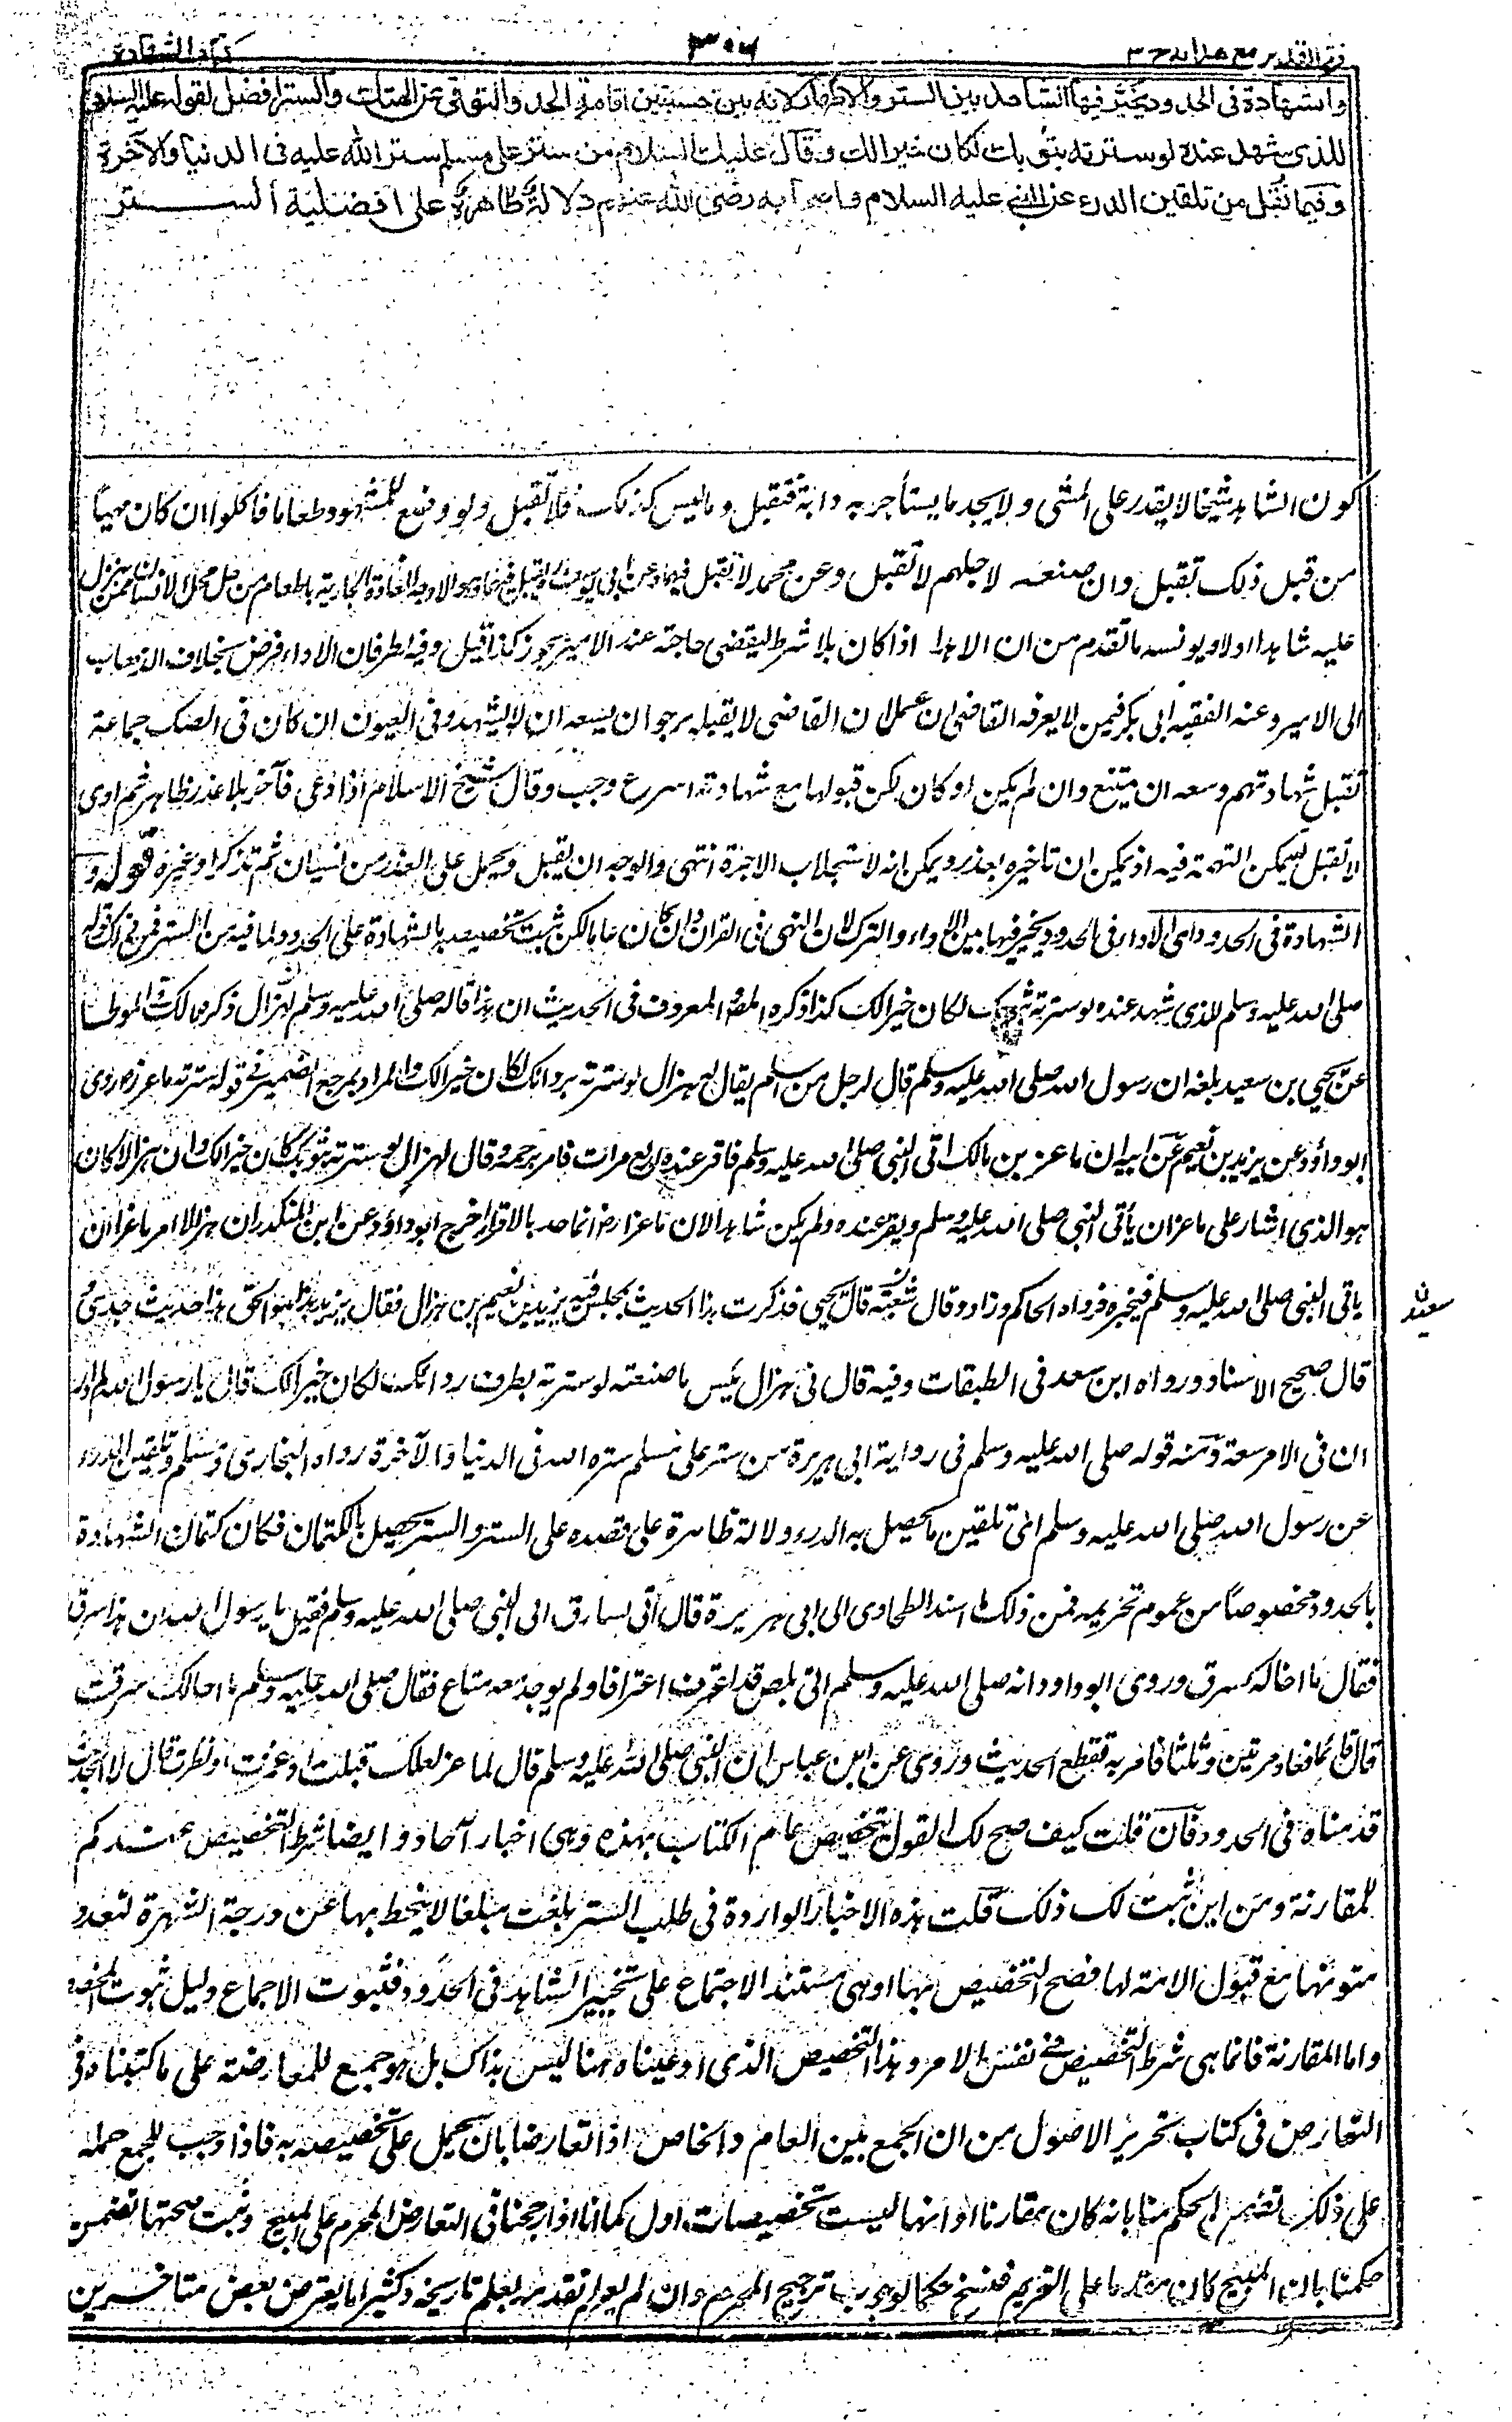 فتح القدير مع هدايه ج ٣
٣٠٦
كتاب الشهادة
والشهادة فى الحدود يخيّر فيها الشاهد بين الستر والاظهار لانه بين حسبتين اقامة الحد والتوقى عن الهتك والستر افضل لقوله عليه السلام
للذى شهد عنده لو سترته بثوبك لكان خيرا لك وقال عليه السلام من ستر على مسلم ستر الله عليه فى الدنيا والآخرة
وفيما نقل من تلقين الدرء عن النبى عليه السلام واصحابه رضى الله عنهم دلالة ظاهرة على افضلية الستر
كون الشاهد شيخا لا يقدر على المشى ولا يجد ما يستأجر به دابة فتقبل وما ليس كذلك فلا تقبل ولو وضع للشهود طعاما فاكلوا ان كان مهيأ
من قبل ذلك تقبل وان صنعه لاجلهم لا تقبل وعن محمد لا تقبل فيهما وعن ابى يوسف تقبل فيهما وهو الاوجه للعادة الجارية باطعام من حل محل الانسان ممن يعز
عليه شاهدا اولا ويؤنسه ما تقدم من ان الاهداء اذا كان بلا شرط ليقضى حاجته عند الامير يجوز كذا قيل وفيه نظر فان الاداء فرض بخلاف الذهاب
الى الامير وعنه الفقيه ابى بكر فيمن لا يعرفه القاضى ان علم ان القاضى لا يقبله نرجو ان يسعه ان لا يشهد وفى العيون ان كان فى الصك جماعة
تقبل شهادتهم وسعه ان يمتنع وان لم يكن او كان لكن قبولها مع شهادته اسرع وجب وقال شيخ الاسلام اذا دعى فآخر بلا عذر ظاهر ثم ادى
لا تقبل لتمكن التهمة فيه اذ يمكن ان تاخيره بعذر ويمكن انه لاستجلاب الاجرة انتهى والوجه ان يقبل ويحمل على العذر من نسيان ثم تذكر او غيره قوله و
الشهادة فى الحدود اى الاداء فى الحدود يخير فيها بين الاداء والترك لان النهى فى القرآن وان كان عاما لكن ثبت تخصيصه بالشهادة على الحدود لما فيه من الستر فمن ذلك قوله
صلى الله عليه وسلم للذى شهد عنده لو سترته بثوبك لكان خيرا لك كذا ذكره المصـ والمعروف فى الحديث ان هذا قاله صلى الله عليه وسلم لهزال ذكره مالك فى الموطا
عن يحيى بن سعيد بلغه ان رسول الله صلى الله عليه وسلم قال لرجل من اسلم يقال له هزال لو سترته بردائك لكان خيرا لك والمراد بمرجع الضمير فى قوله سترته ماعز وروى
ابو داؤد عن يزيد بن نعيم عن ابيه ان ماعز بن مالك اتى النبى صلى الله عليه وسلم فاقر عنده اربع مرات فامر برجمه وقال لهزال لو سترته بثوبك كان خيرا لك وان هزالا كان
هو الذى اشار على ماعز ان يأتى النبى صلى الله عليه وسلم ويقر عنده ولم يكن شاهدا لان ماعزا رض انما حد بالاقرار اخرج ابو داؤد عن ابن المنكدر ان هزالا امر ماعزا ان
ياتى النبى صلى الله عليه وسلم فيخبره ورواه الحاكم وزاد وقال شعبة قال يحيى فذكرت هذا الحديث بمجلس فيه يزيد بن نعيم بن هزال فقال يزيد هذا هو الحق هذا حديث جدى و
سعيد
قال صحيح الاسناد ورواه ابن سعد فى الطبقات وفيه قال فى هزال بئس ما صنعته لو سترته بطرف ردائك لكان خيرا لك قال يا رسول الله لم ادر
ان فى الامر سعة ومنه قوله صلى الله عليه وسلم فى رواية ابى هريرة من ستر على مسلم ستره الله فى الدنيا والآخرة رواه البخارى ومسلم وتلقين الدرء
عن رسول الله صلى الله عليه وسلم اى تلقين ما يحصل به الدرء دلالة ظاهرة على قصده على الستر والستر يحصل بالكتمان فكان كتمان الشهادة
بالحدود مخصوصا من عموم تحريمه فمن ذلك ما اسند الطحاوى الى ابى هريرة قال اتى بسارق الى النبى صلى الله عليه وسلم فقيل يا رسول الله ان هذا سرق
فقال ما اخاله سرق وروى ابو داود انه صلى الله عليه وسلم اتى بلص قد اعترف اعترافا ولم يوجد معه متاع فقال صلى الله عليه وسلم ما اخالك سرقت
قال بلى فاعاد مرتين وثلثا فامر به فقطع الحديث وروى عن ابن عباس ان النبى صلى الله عليه وسلم قال لماعز لعلك قبلت او غمزت او نظرت قال لا الحديث
قدمناه فى الحدود فان قلت كيف صح لك القول بتخصيص عام الكتاب بهذه وهى اخبار آحاد وايضا شرط التخصيص عندكم
المقارنة ومن اين ثبت لك ذلك قلت هذه الاخبار الواردة فى طلب الستر بلغت مبلغا لا ينحط بها عن درجة الشهرة لتعدد
متونها مع قبول الامة لها فصح التخصيص بها او هى مستند الاجتماع على تخيير الشاهد فى الحدود فثبوت الاجماع دليل ثبوت المخصص
واما المقارنة فانما هى شرط التخصيص فى نفس الامر وهذا التخصيص الذى ادعيناه هنا ليس بذاك بل هو جمع للمعارضة على ما كتبناه فى
التعارض فى كتاب تحرير الاصول من ان الجمع بين العام والخاص اذا تعارضا بان يحمل على تخصيصه به فاذا وجب للجمع حمله
على ذلك تضمن الحكم منا بانه كان مقارنا او انها ليست تخصيصات اول كما انا اذا رجحنا فى التعارض المحرم على المبيح وثبت صحتها تضمن
حكمنا بان المبيح كان مقدما على التحريم فنسخ حكما لوجوب ترجيح المحرم وان لم يعلم تقدمه بعلم تاريخه وكثيرا ما يعترض بعض متاخرين